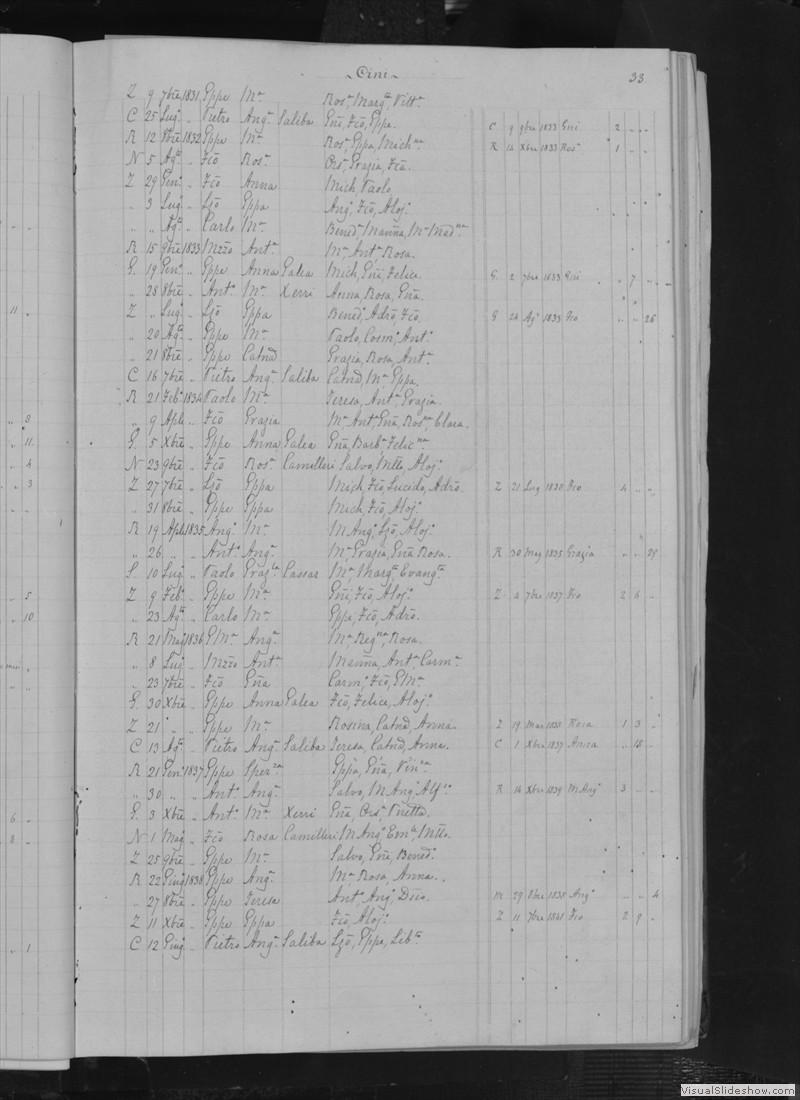 Cini
33
Z 9 7bre 1831 Gppe Mª Rosª, Margta, Vittª
C 25 Lugº " Pietro Angª Saliba Gni, Fcõ, Gppe. C 9 9bre 1833 Gni 2 " "
R 12 8bre 1832 Gppe Mª Rosª, Gppa, Michna R 14 Xbre 1833 Rosª 1 " "
N 5 Agto " Fcõ Rosª Orsª, Grazia, Fcã.
Z 29 Genº " Fcõ Anna Mich, Paolo
" 3 Lugº " Lzõ Gppa Angº, Fcõ, Alojº
" " Agto " Carlo Mª Benedª Marĩna, Mª Madna
R 15 9bre 1833 Nzzõ Antª Mª, Antª Rosa.
G. 19 Genº " Gppe Anna Galea Mich, Gni, Felice. G. 2 7bre 1833 Gni " 7 "
" 28 8bre " Antº Mª Xerri Anna, Rosa, Gña.
Z " Lugº " Lzõ Gppa Benedº, Adrõ, Fcõ. G 24 Agº 1833 Fcõ " " 26
" 20 Agto " Gppe Mª Paolo, Cosmº, Antº
" 21 8bre " Gppe Catnã Grazia, Rosa, Antª
C 16 7bre " Pietro Angª Saliba Catnã, Mª, Gppa.
R 21 Febº 1834 Paolo Mª Teresa, Antª, Grazia.
" 9 Aple " Fcõ Grazia Mª, Antª, Gña, Rosna, Clara.
G. 5 Xbre " Gppe Anna Galea Gña, Barbª, Felicna
N 23 9bre " Fcõ Rosª Camilleri Salvo, Mtto, Alojº
Z 27 7bre " Lzõ Gppa Mich, Fcõ, Lucido, Adrõ. Z 21 Lug 1838 Fcõ 4 " "
" 31 8bre " Gppe Gppa Mich, Fcõ, Alojº
R 19 Aple 1835 Angº Mª M. Angº, Lzõ, Alojº
" 26 " " Antº Angª Mª, Grazia, Gña, Rosa. R 30 Mag 1835 Grazia " " 29
S. 10 Lugº " Paolo Grazla Cassar Mª, Margta, Evangta
Z 9 Febº " Gppe Mª Gni, Fcõ, Alojº Z 4 7bre 1837 Fcõ 2 6 "
" 23 Agto " Carlo Mª Gppe, Fcõ, Adrõ.
R 21 Magº 1836 G. Mª Angª Mª, Regna, Rosa.
" 8 Lugº " Nzzõ Antª Marĩna, Antª, Carmª
" 23 7bre " Fcõ Gña Carmº, Fcõ, G. Mª
G. 30 Xbre " Gppe Anna Galea Fcõ, Felice, Alojº
Z 21 " " Gppe Mª Rosina, Catnã, Anna. Z 19 Mar 1838 Rosa 1 3 "
C 13 Agto " Pietro Angª Saliba Teresa, Catnã, Anna. C 1 Xbre 1837 Anna " 15 "
R 21 Genº 1837 Gppe Sperza Gppa, Gña, Vinna
" 30 " " Antº Angª Salvo, M. Angº, Alfso R 14 Xbre 1839 M. Angº 3 " "
G. 3 Xbre " Antº Mª Xerri Gña, Orsª, Vnetta.
N 1 Magº " Fcõ Rosa Camilleri M. Angº, Emle, Mtto.
Z 25 9bre " Gppe Mª Salvo, Gni, Benedº
R 22 Giugº 1838 Gppe Angª Mª, Rosa, Anna.
" 27 8bre " Gppe Teresa Antº, Angº, Dico. R 29 8bre 1838 Angº " " 4
Z 11 Xbre " Gppe Gppa Fcõ, Alojº Z 11 7bre 1841 Fcõ 2 9 "
C 12 Giugº " Pietro Angª Saliba Lzõ, Gppe, Libto
VisualSlideshow.com